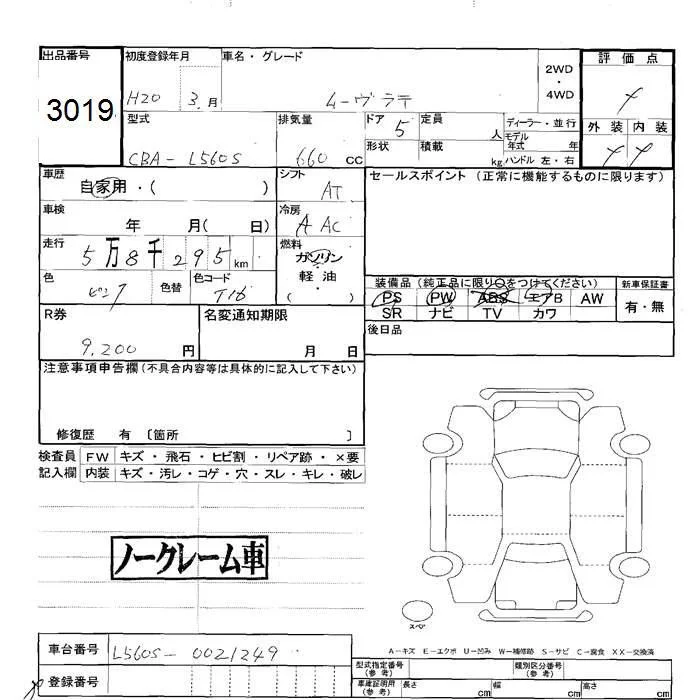 出品番号 初度登録年月 車名・グレード 評価点
3019 H20 3.月 ムーヴラテ 2WD・4WD
外装 内装
型式 排気量 ドア 定員 ディーラー・並行
CBA-L560S 660 CC 5 人 モデル年式 年
形状 積載 kg ハンドル 左・右
車歴 シフト セールスポイント (正常に機能するものに限ります)
自家用・( ) AT
車検 冷房
年 月( 日) AAC
走行 燃料
5万8千295km ガソリン
軽油
( )
色 色替 色コード
ピンク T16
装備品 (純正品に限り○をつけてください) 新車保証書
PS PW ABS エアB AW 有・無
SR ナビ TV カワ
R券 名変通知期限 後日品
9,200円 月 日
注意事項申告欄 (不具合内容等は具体的に記入して下さい)
修復歴 有 〔箇所 〕
検査員 FW キズ・飛石・ヒビ割・リペア跡・×要
記入欄 内装 キズ・汚レ・コゲ・穴・スレ・キレ・破レ
ノークレーム車
スペア
A−キズ E−エクボ U−凹み W−補修跡 S−サビ C−腐食 XX−交換済
車台番号 L560S-0021249
登録番号
型式指定番号 (参考) 類別区分番号 (参考)
車庫証明用 (参考) 長さ cm 幅 cm 高さ cm